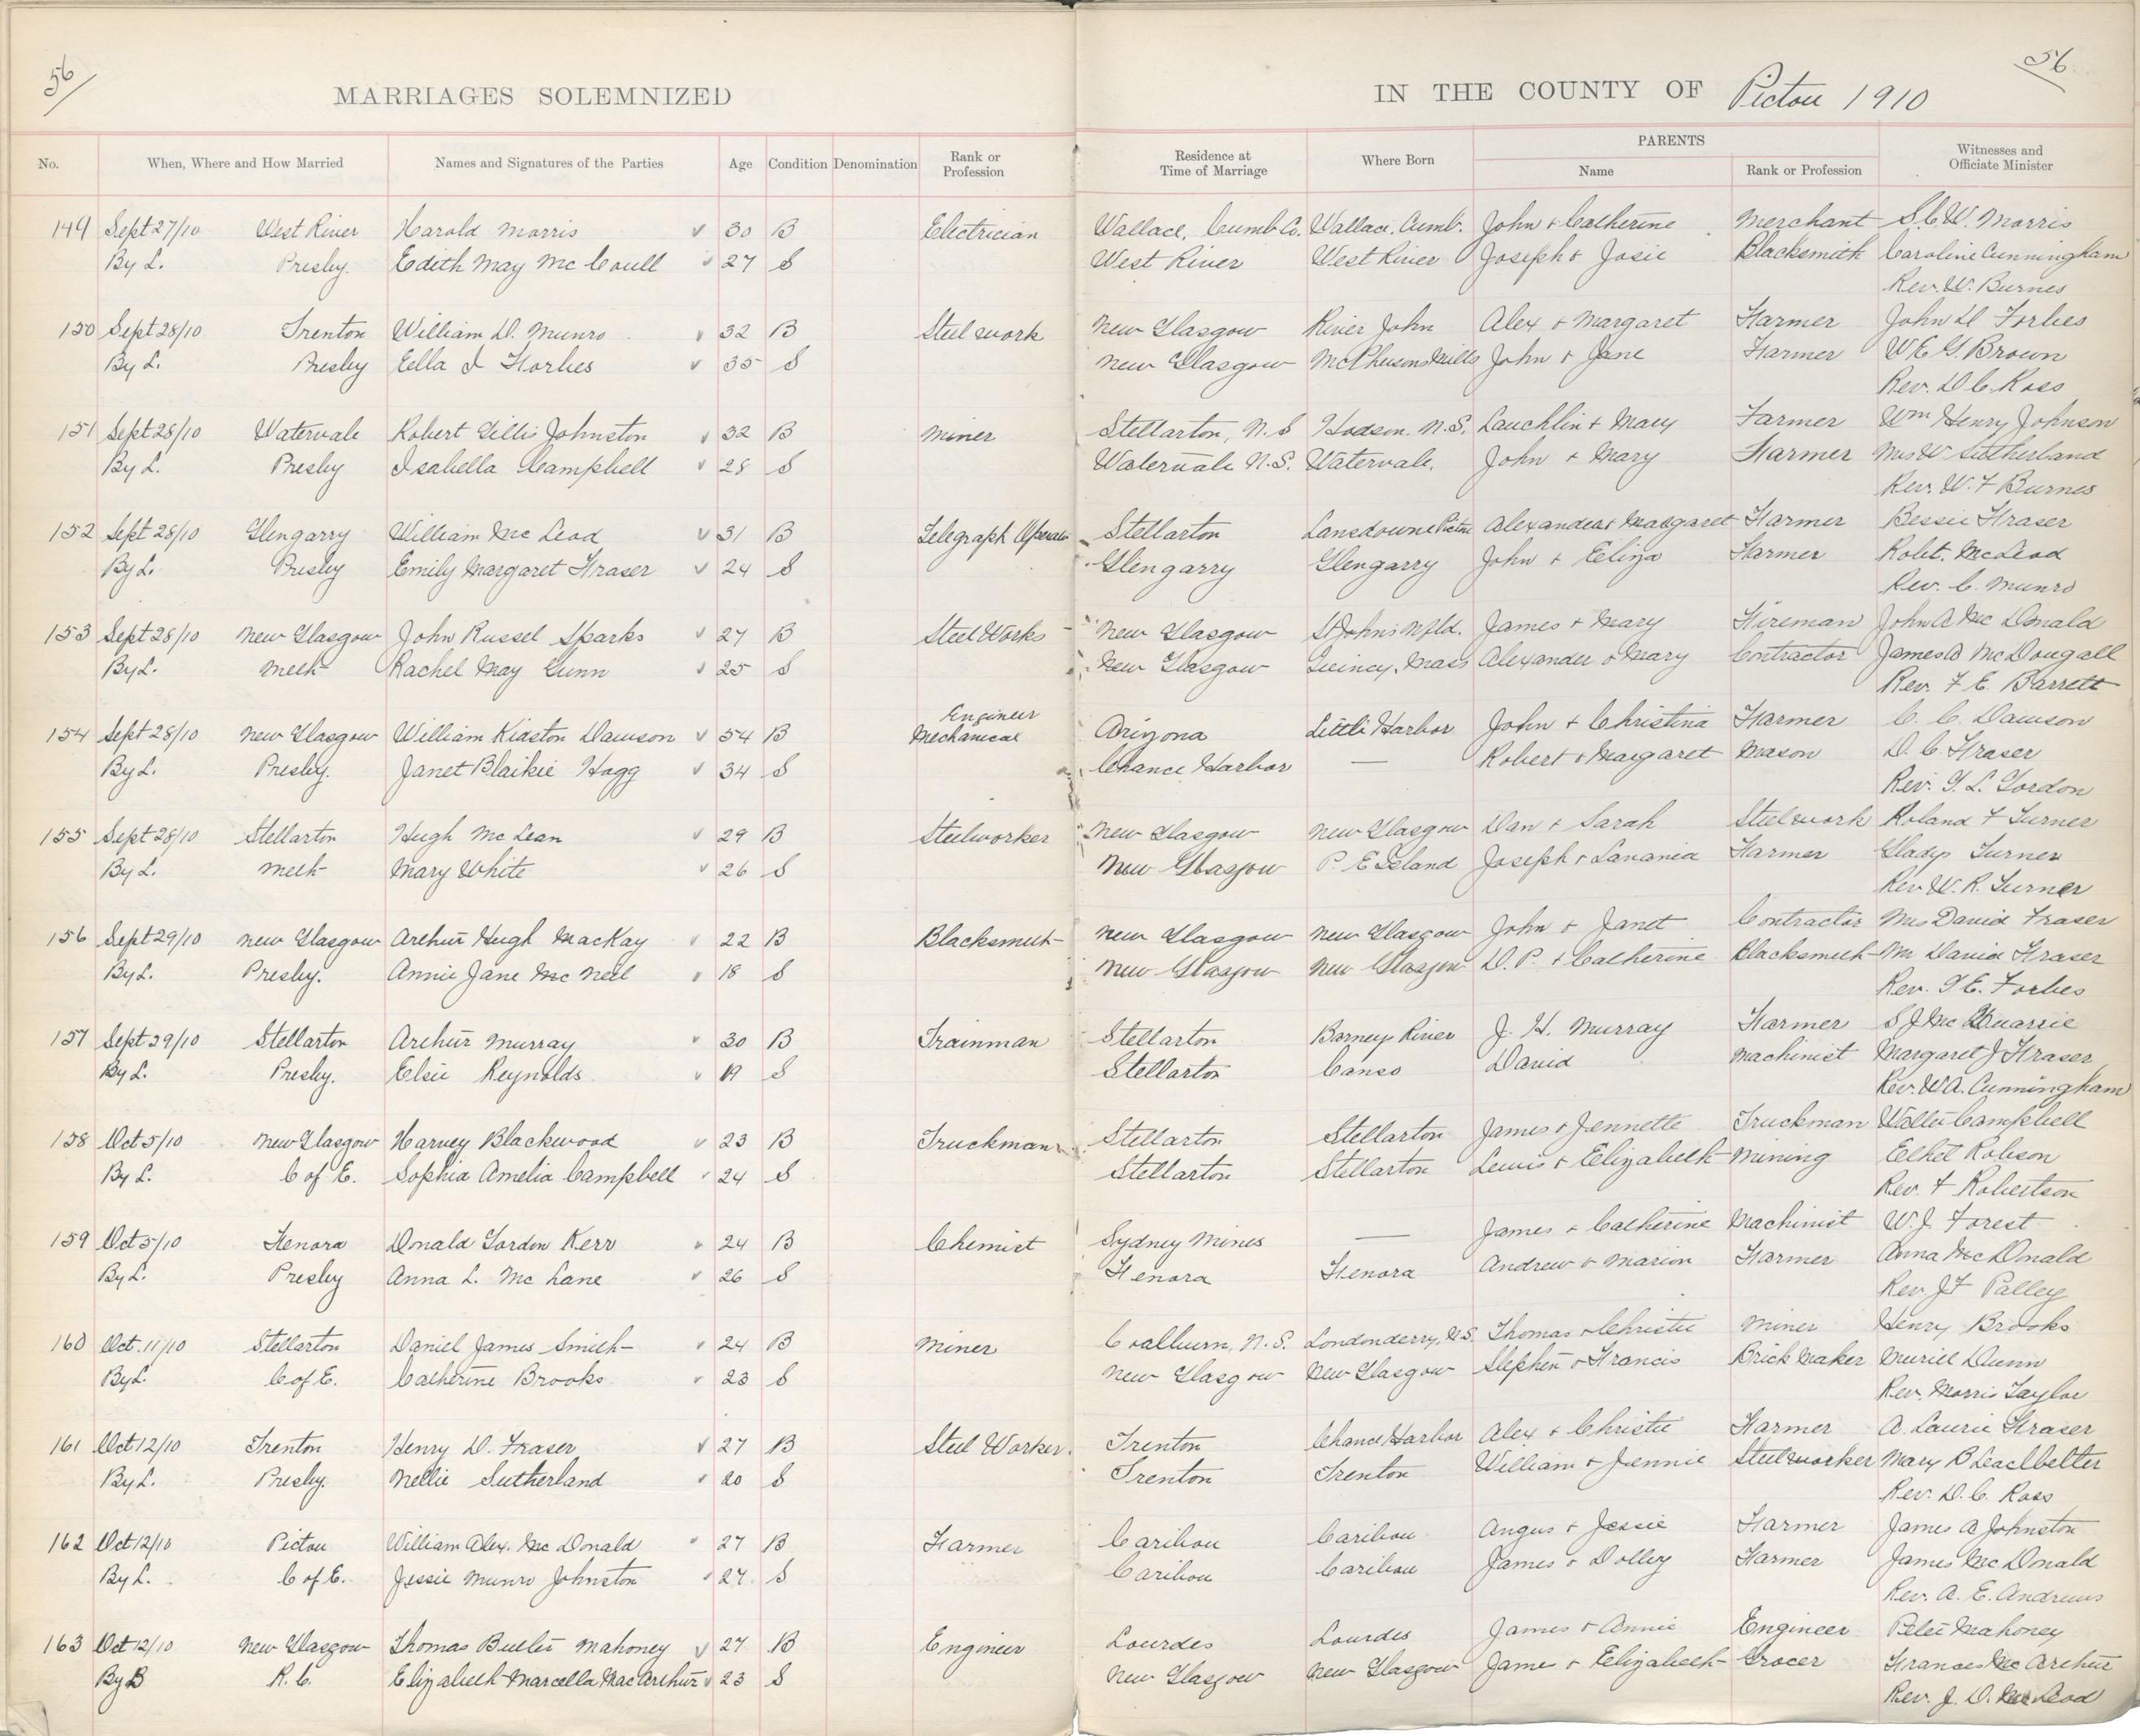 56
56
MARRIAGES SOLEMNIZED IN THE COUNTY OF Pictou 1910
No. When, Where and How Married Names and Signatures of the Parties Age Condition Denomination Rank or Profession Residence at Time of Marriage Where Born PARENTS Name Rank or Profession Witnesses and Officiate Minister
149 Sept 27/10 West River Harold Morris v 30 B Electrician Wallace, Cumb Co. Wallace, Cumb. John + Catherine Merchant S.C.W. Morris
By L. Presby. Edith May Mc Coull v 27 S West River West River Joseph + Josie Blacksmith Caroline Cunningham
Rev. W. Burnes
150 Sept 28/10 Trenton William D. Munro v 32 B Steel work New Glasgow River John Alex + Margaret Farmer John D Forbes
By L. Presby Ella J Forbes v 35 S New Glasgow McPhersons Mills John + Jane Farmer W E G. Brown
Rev. D C. Ross
151 Sept 28/10 Watervale Robert Gillis Johnston v 32 B Miner Stellarton, N.S Hodson. N.S. Lauchlin + Mary Farmer Wm Henry Johnson
By L. Presby Isabella Campbell v 28 S Watervale N.S. Watervale. John + Mary Farmer Mrs W Sutherland
Rev. W. F Burnes
152 Sept 28/10 Glengarry William Mc Leod v 31 B Telegraph Operator Stellarton Lansdowne Pictou Alexander + Margaret Farmer Bessie Fraser
By L. Presby Emily Margaret Fraser v 24 S Glengarry Glengarry John + Eliza Farmer Robt. McLeod
Rev. C. Munro
153 Sept 28/10 New Glasgow John Russel Sparks v 27 B Steel Works New Glasgow St Johns Nfld. James + Mary Fireman John A Mc Donald
By L. Meth Rachel May Gunn v 25 S New Glasgow Quincy, Mass Alexander + Mary Contractor James D McDougall
Rev. F E. Barrett
154 Sept 28/10 New Glasgow William Kiaston Dawson v 54 B Engineer Mechanical Arizona Little Harbor John + Christina Farmer C. C. Dawson
By L. Presby. Janet Blaikie Hogg v 34 S Chance Harbor — Robert + Margaret Mason D. C. Fraser
Rev. G. L. Gordon
155 Sept 28/10 Stellarton Hugh Mc Lean v 29 B Steelworker New Glasgow New Glasgow Dan + Sarah Steel work Roland F Turner
By L. Meth Mary White v 26 S New Glasgow P. E Island Joseph + Lavania Farmer Gladys Turner
Rev W. R. Turner
156 Sept 29/10 New Glasgow Arthur Hugh MacKay v 22 B Blacksmith New Glasgow New Glasgow John + Janet Contractor Mrs David Fraser
By L. Presby. Annie Jane Mc Neil v 18 S New Glasgow New Glasgow D. P. + Catherine Blacksmith Mr David Fraser
Rev. G E. Forbes
157 Sept 29/10 Stellarton Arthur Murray v 30 B Trainman Stellarton Barneys River J. H. Murray Farmer S J Mc Quarrie
By L. Presby. Elsie Reynolds v 19 S Stellarton Canso David Machinist Margaret J Fraser
Rev. W A. Cunningham
158 Oct 5/10 New Glasgow Harvey Blackwood v 23 B Truckman Stellarton Stellarton James + Jennette Truckman Walter Campbell
By L. C of E. Sophia Amelia Campbell v 24 S Stellarton Stellarton Lewis + Elizabeth Mining Ethel Robson
Rev. F Robertson
159 Oct 5/10 Kenora Donald Gordon Kerr v 24 B Chemist Sydney Mines — James + Catherine Machinist W. J. Forest
By L. Presby Anna L. Mc Lane v 26 S Kenora Kenora Andrew + Marion Farmer Anna Mc Donald
Rev. J F Palley
160 Oct. 11/10 Stellarton Daniel James Smith v 24 B Miner Coalburn, N.S. Londonderry, N.S. Thomas + Christie Miner Henry Brooks
By L. C of E. Catherine Brooks v 23 S New Glasgow New Glasgow Stephen + Francis Brick Maker Muriel Dunn
Rev. Morris Taylor
161 Oct 12/10 Trenton Henry D. Fraser v 27 B Steel Worker. Trenton Chance Harbor Alex + Christie Farmer A. Laurie Fraser
By L. Presby. Nellie Sutherland v 20 S Trenton Trenton William + Jennie Steelworker Mary B Leadbetter
Rev. D. C. Ross
162 Oct 12/10 Pictou William Alex. Mc Donald v 27 B Farmer Caribou Caribou Angus + Jessie Farmer James A Johnston
By L. C of E. Jessie Munro Johnston v 27 S Caribou Caribou James + Dolley Farmer James Mc Donald
Rev. A. E. Andrews
163 Oct 12/10 New Glasgow Thomas Butler Mahoney v 27 B Engineer Lourdes Lourdes James + Annie Engineer Peter Mahoney
By B R. C. Elizabeth Marcella MacArthur v 23 S New Glasgow New Glasgow James + Elizabeth Grocer Frances Mc Arthur
Rev. J. D. Mc Leod